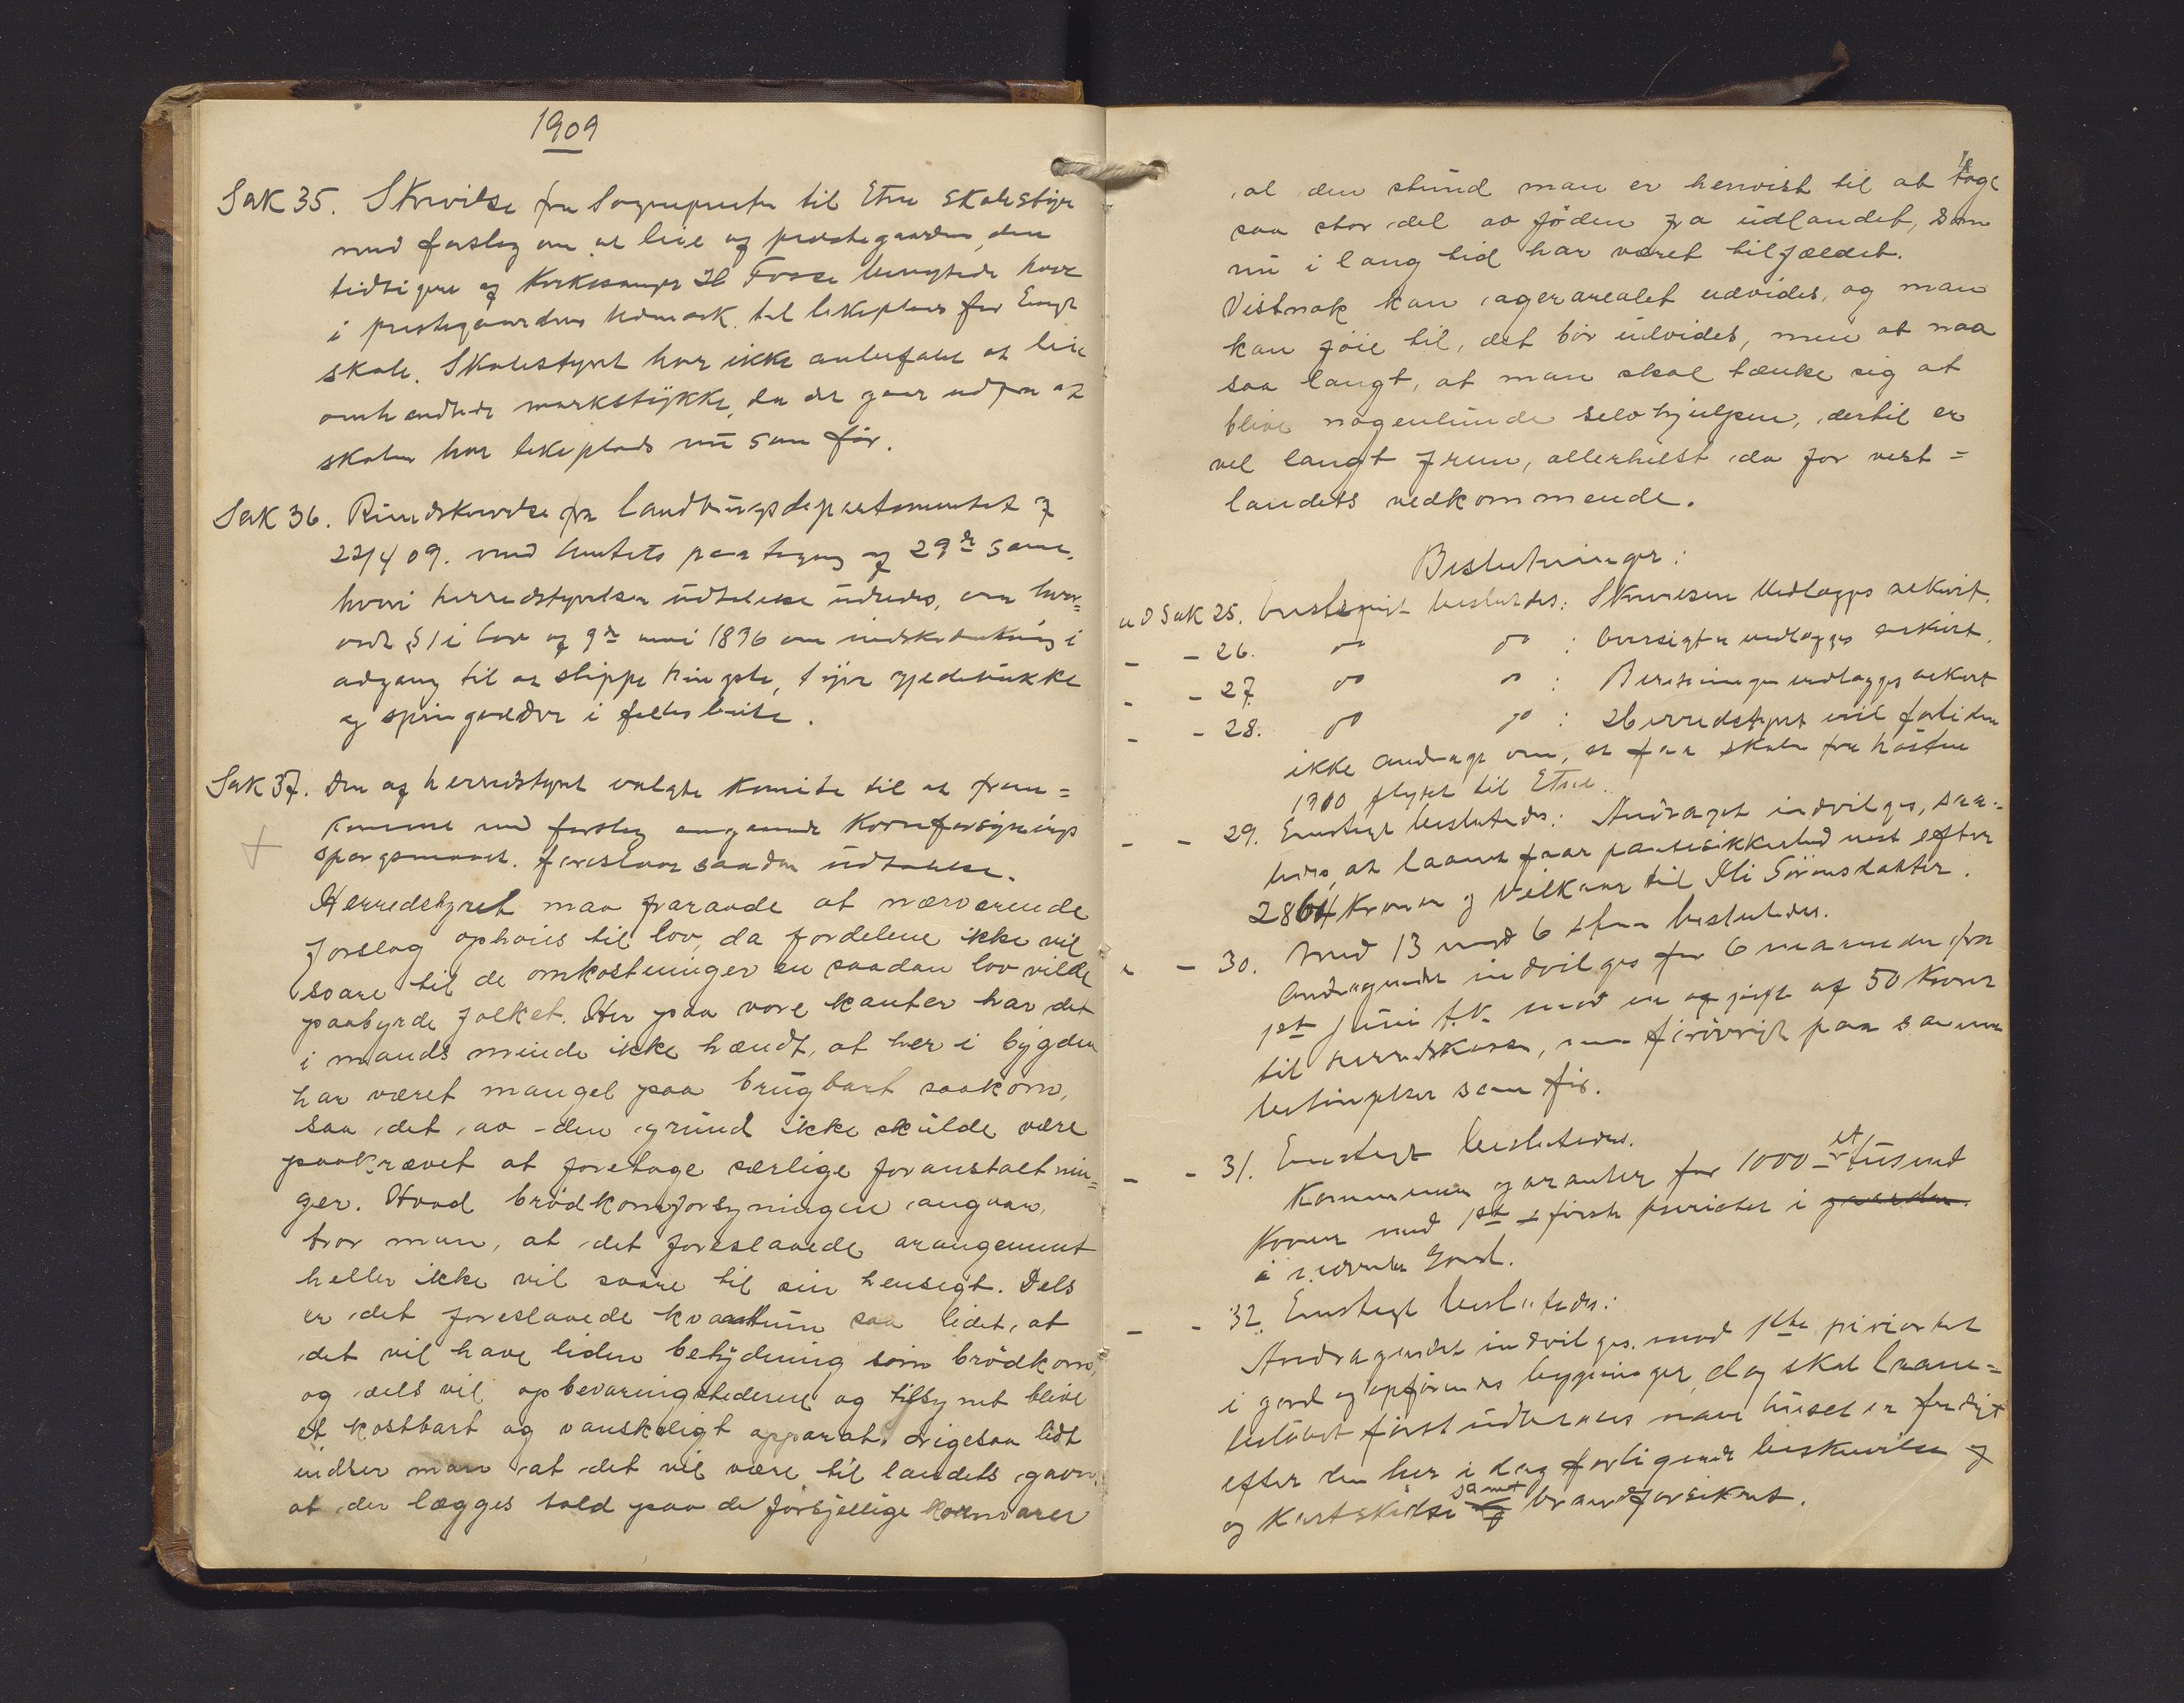 1909
Sak 35. Skrivelse fra Sogneprest til Etne skolestyr
med forslag om at leie af prestegaarden, den
tidligere af Kirkesanger H Fosse benyttede have
i prestegaardens utmark til lekeplads for Enge
skole. Skolestyret har ikke anbefalet at leie
omhandlede markstykke, da det gaar ud fra at
skolen har lekeplads nu som før.
Sak 36. Rundskrivelse fra Landbrugsdepartementet af
22/4 09. med Amtets paategning af 29de s.m.
hvori herredstyrelsens udtalelse udbedes, om
§ 1 i lov af 9de mai 1896 om indskrænkning i
adgang til at slippe hingste, tyre gjedebukke
og springvædder i fellesbeite.
Sak 37. Den af herredstyret valgte komite til at frem=
komme med forslag angaaende Kornforsynings
spørgsmaalet. foreslaar saadan udtalelse.
Herredstyret maa fraraade at nærværende
forslag ophøies til lov, da fordelene ikke vil
svare til de omkostninger en saadan lov vilde
paabyrde folket. Her paa vore kanter har det
i mands minde ikke hændt, at her i bygden
har været mangel paa brugbart saakorn,
saa det av den grund ikke skulde være
paakrævet at foretage særlige foranstaltnin=
ger. Hvad brødkornforsyningen angaar,
tror man, at det foreslaaede arangement
heller ikke vil svare til sin hensigt. Dels
er det foreslaaede kvantum saa lidet, at
det vil have liden betydning som brødkorn,
og dels vil opbevaringstederne og tilsynet blive
et kostbart og vanskeligt apparat. Ligesaa lidt
indser man at det vil være til landets gavn,
at der lægges told paa de forsjellige kornvarer
al den stund man er henvist til at tage
saa stor del av føden fra udlandet, som
nu i lang tid har været tilfældet.
Vistnok kan ageraralet udvides, og man
kan føie til, det bør udvides, men at naa
saa langt, at man skal tænke sig at
blive nogenlunde selvhjulpen, dertil er
vel langt frem, allerhelst da for vest=
landets vedkommende.
Beslutninger:
ad Sak 25. Enstemigt besluttedes: Skrivelsen vedlægges arkivet.
- - 26. do do : Oversigten vedlægges arkivet.
- - 27. do do : Beretningen vedlægges arkivet
- - 28. do do : Herredstyret vil fortiden
ikke andrage om, at faa skolen fra høsten
1910 flyttet til Etne.
- - 29. Enstemigt besluttedes: Andraget indvilges, saa-
ledes, at laanet faar pantesikkerhed nest efter
2864 Kroner og Vilkaar til Eli Sørensdatter.
- - 30. Med 13 mod 6 stemmer besluttedes.
Andragendet indvilges for 6 maaneder fra
1st Juni d.A. mod en afgift af 50 Kroner
til herredskassen, men forøvrigt paa samme
betingelser som før.
- - 31. Enstemigt besluttedes.
Kommunen garanterer for 1000 - et tusend
Kroner med 1st - første prioritet i gaarden.
i nævnte Gord.
- - 32. Enstemigt besluttedes:
Andragendet indvilges. mod 1ste prioritet
i gord og opførendes bygninger, dog skal laane=
beløbet først udbetales naar huset er færdigt
efter den her i dag forliggende beskrivelse og
og Kartskidse samt brandforsikret.